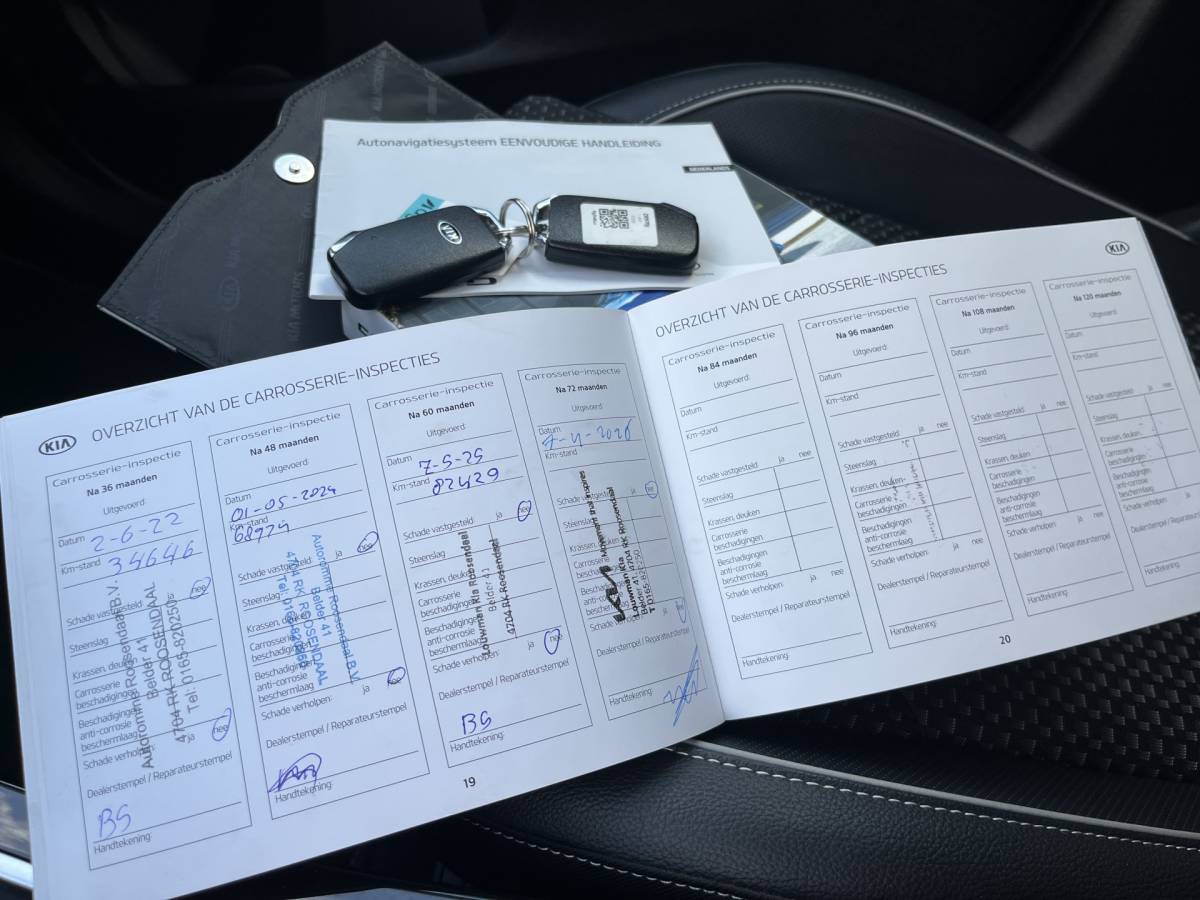 Autonavigatiesysteem EENVOUDIGE HANDLEIDING
NEDERLANDS
KIA
KIA
OVERZICHT VAN DE CARROSSERIE-INSPECTIES
Carrosserie-inspectie
Na 36 maanden
Uitgevoerd:
Datum 2-6-22
Km-stand 34646
Schade vastgesteld: ja nee
Steenslag
Krassen, deuken
Carrosserie
beschadigingen
Beschadigingen
anti-corrosie
beschermlaag
Schade verholpen: ja nee
Autoromme Roosendaal B.V.
Belder 41
4704 RK ROOSENDAAL
Tel: 0165-820250
Dealerstempel / Reparateurstempel
BS
Handtekening:
Carrosserie-inspectie
Na 48 maanden
Uitgevoerd:
Datum
01-05-2024
Km-stand
68974
Schade vastgesteld: ja nee
Steenslag
Krassen, deuken
Carrosserie
beschadigingen
Beschadigingen
anti-corrosie
beschermlaag
Schade verholpen: ja nee
Autoromme Roosendaal B.V.
Belder 41
4704 RK ROOSENDAAL
Dealerstempel / Reparateurstempel
Handtekening:
Carrosserie-inspectie
Na 60 maanden
Uitgevoerd:
Datum 7-5-25
Km-stand 82429
Schade vastgesteld: ja nee
Steenslag
Krassen, deuken
Carrosserie
beschadigingen
Beschadigingen
anti-corrosie
beschermlaag
Schade verholpen: ja nee
Louwman Kia Roosendaal
Belder 41
4704 RK Roosendaal
Dealerstempel / Reparateurstempel
BS
Handtekening:
Carrosserie-inspectie
Na 72 maanden
Uitgevoerd:
Datum
7-4-2026
Km-stand
Schade vastgesteld
Steenslag
Krassen, deuken
KIA Movement that inspires
Louwman Kia
Belder 41, 4704 RK Roosendaal
Dealerstempel / Reparateurstempel
Handtekening:
19
KIA
OVERZICHT VAN DE CARROSSERIE-INSPECTIES
Carrosserie-inspectie
Na 84 maanden
Uitgevoerd:
Datum
Km-stand
Schade vastgesteld: ja nee
Steenslag
Krassen, deuken
Carrosserie
beschadigingen
Beschadigingen
anti-corrosie
beschermlaag
Schade verholpen: ja nee
Dealerstempel / Reparateurstempel
Handtekening:
Carrosserie-inspectie
Na 96 maanden
Uitgevoerd:
Datum
Km-stand
Schade vastgesteld: ja nee
Steenslag
Krassen, deuken
Carrosserie
beschadigingen
Beschadigingen
anti-corrosie
beschermlaag
Schade verholpen: ja nee
Dealerstempel / Reparateurstempel
Handtekening:
Carrosserie-inspectie
Na 108 maanden
Uitgevoerd:
Datum
Km-stand
Schade vastgesteld: ja nee
Steenslag
Krassen, deuken
Carrosserie
beschadigingen
Beschadigingen
anti-corrosie
beschermlaag
Schade verholpen: ja nee
Dealerstempel / Reparateurstempel
Handtekening:
Carrosserie-inspectie
Na 120 maanden
Uitgevoerd:
Datum
Km-stand
Schade vastgesteld: ja nee
Steenslag
Krassen, deuken
Carrosserie
beschadigingen
Beschadigingen
anti-corrosie
beschermlaag
Schade verholpen: ja nee
Handtekening:
20